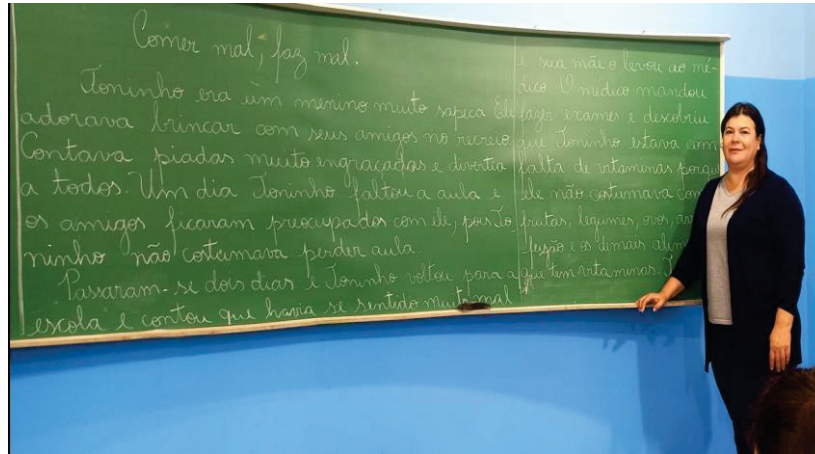 Comer mal, faz mal.
Toninho era um menino muito sapeca Ele
adorava brincar com seus amigos no recreio
Contava piadas muito engraçadas e divertia
a todos. Um dia Toninho faltou a aula e
os amigos ficaram preocupados com ele, pois To
ninho não costumava perder aula.
Passaram-se dois dias e Toninho voltou para a
escola e contou que havia se sentido muito mal
e sua mãe o levou ao mé-
dico. O medico mandou
fazer exames e descobriu
que Toninho estava com
falta de vitaminas porque
ele não costumava
frutas, legumes, ovos,
feijão e os demais
que tem vitaminas.